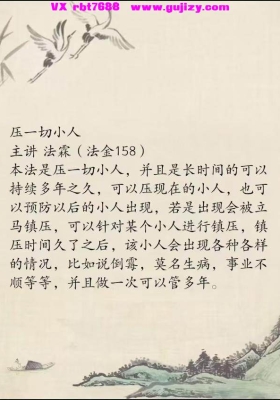 VX rbt7688 www.gujizy.com
压一切小人
主讲 法霖（法金158）
本法是压一切小人，并且是长时间的可以
持续多年之久，可以压现在的小人，也可
以预防以后的小人出现，若是出现会被立
马镇压，可以针对某个小人进行镇压，镇
压时间久了之后，该小人会出现各种各样
的情况，比如说倒霉，莫名生病，事业不
顺等等，并且做一次可以管多年。